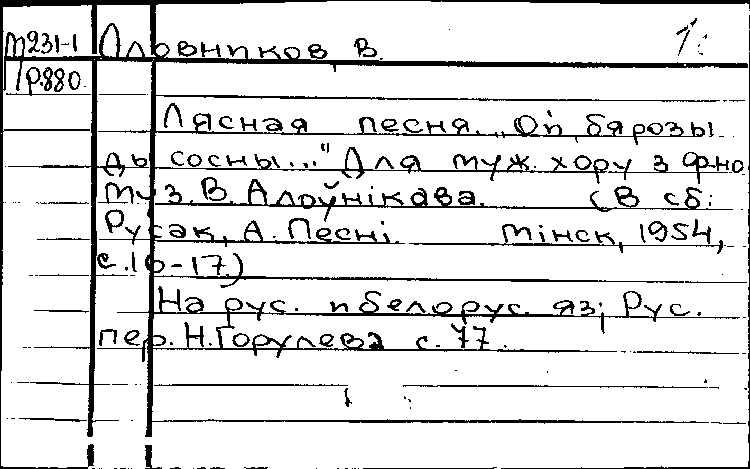 М231-1 Оловников, В. 1.
Р.880
Лясная песня. „Ой, бярозы
ды сосны..." Для муж. хору з ф-но
Муз. В. Алоўнікава. (В сб:
Русак, А. Песні. Мінск, 1954,
с.16-17.)
На рус. и белорус. яз; Рус.
пер. Н. Горулева с. 77.